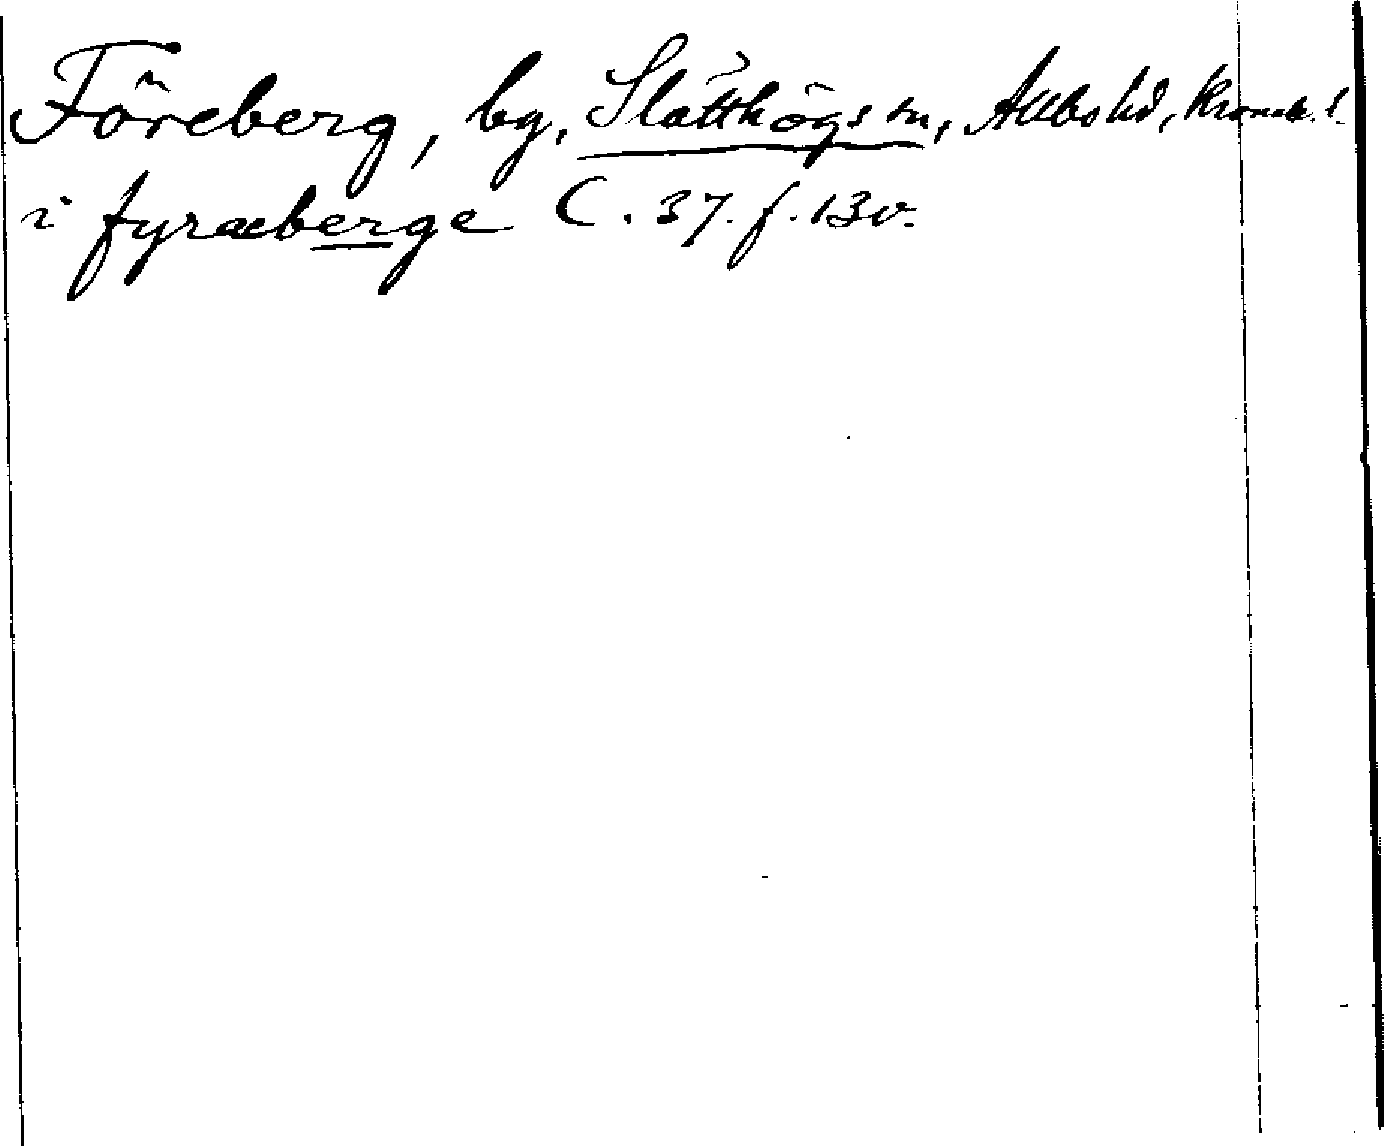 Föreberg, by, Slätthögs sn, Allbo hd, Kronob. l.
i fyræberge C. 37. f. 13v.